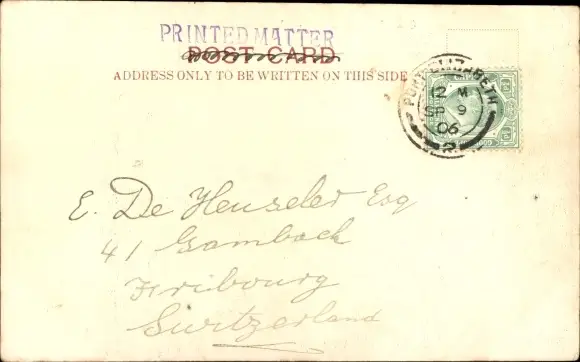 PRINTED MATTER
POST CARD
ADDRESS ONLY TO BE WRITTEN ON THIS SIDE
PORT ELIZABETH
12 M
SP 9
06
E. De Heuseler Esq
41 Gambach
Fribourg
Switzerland